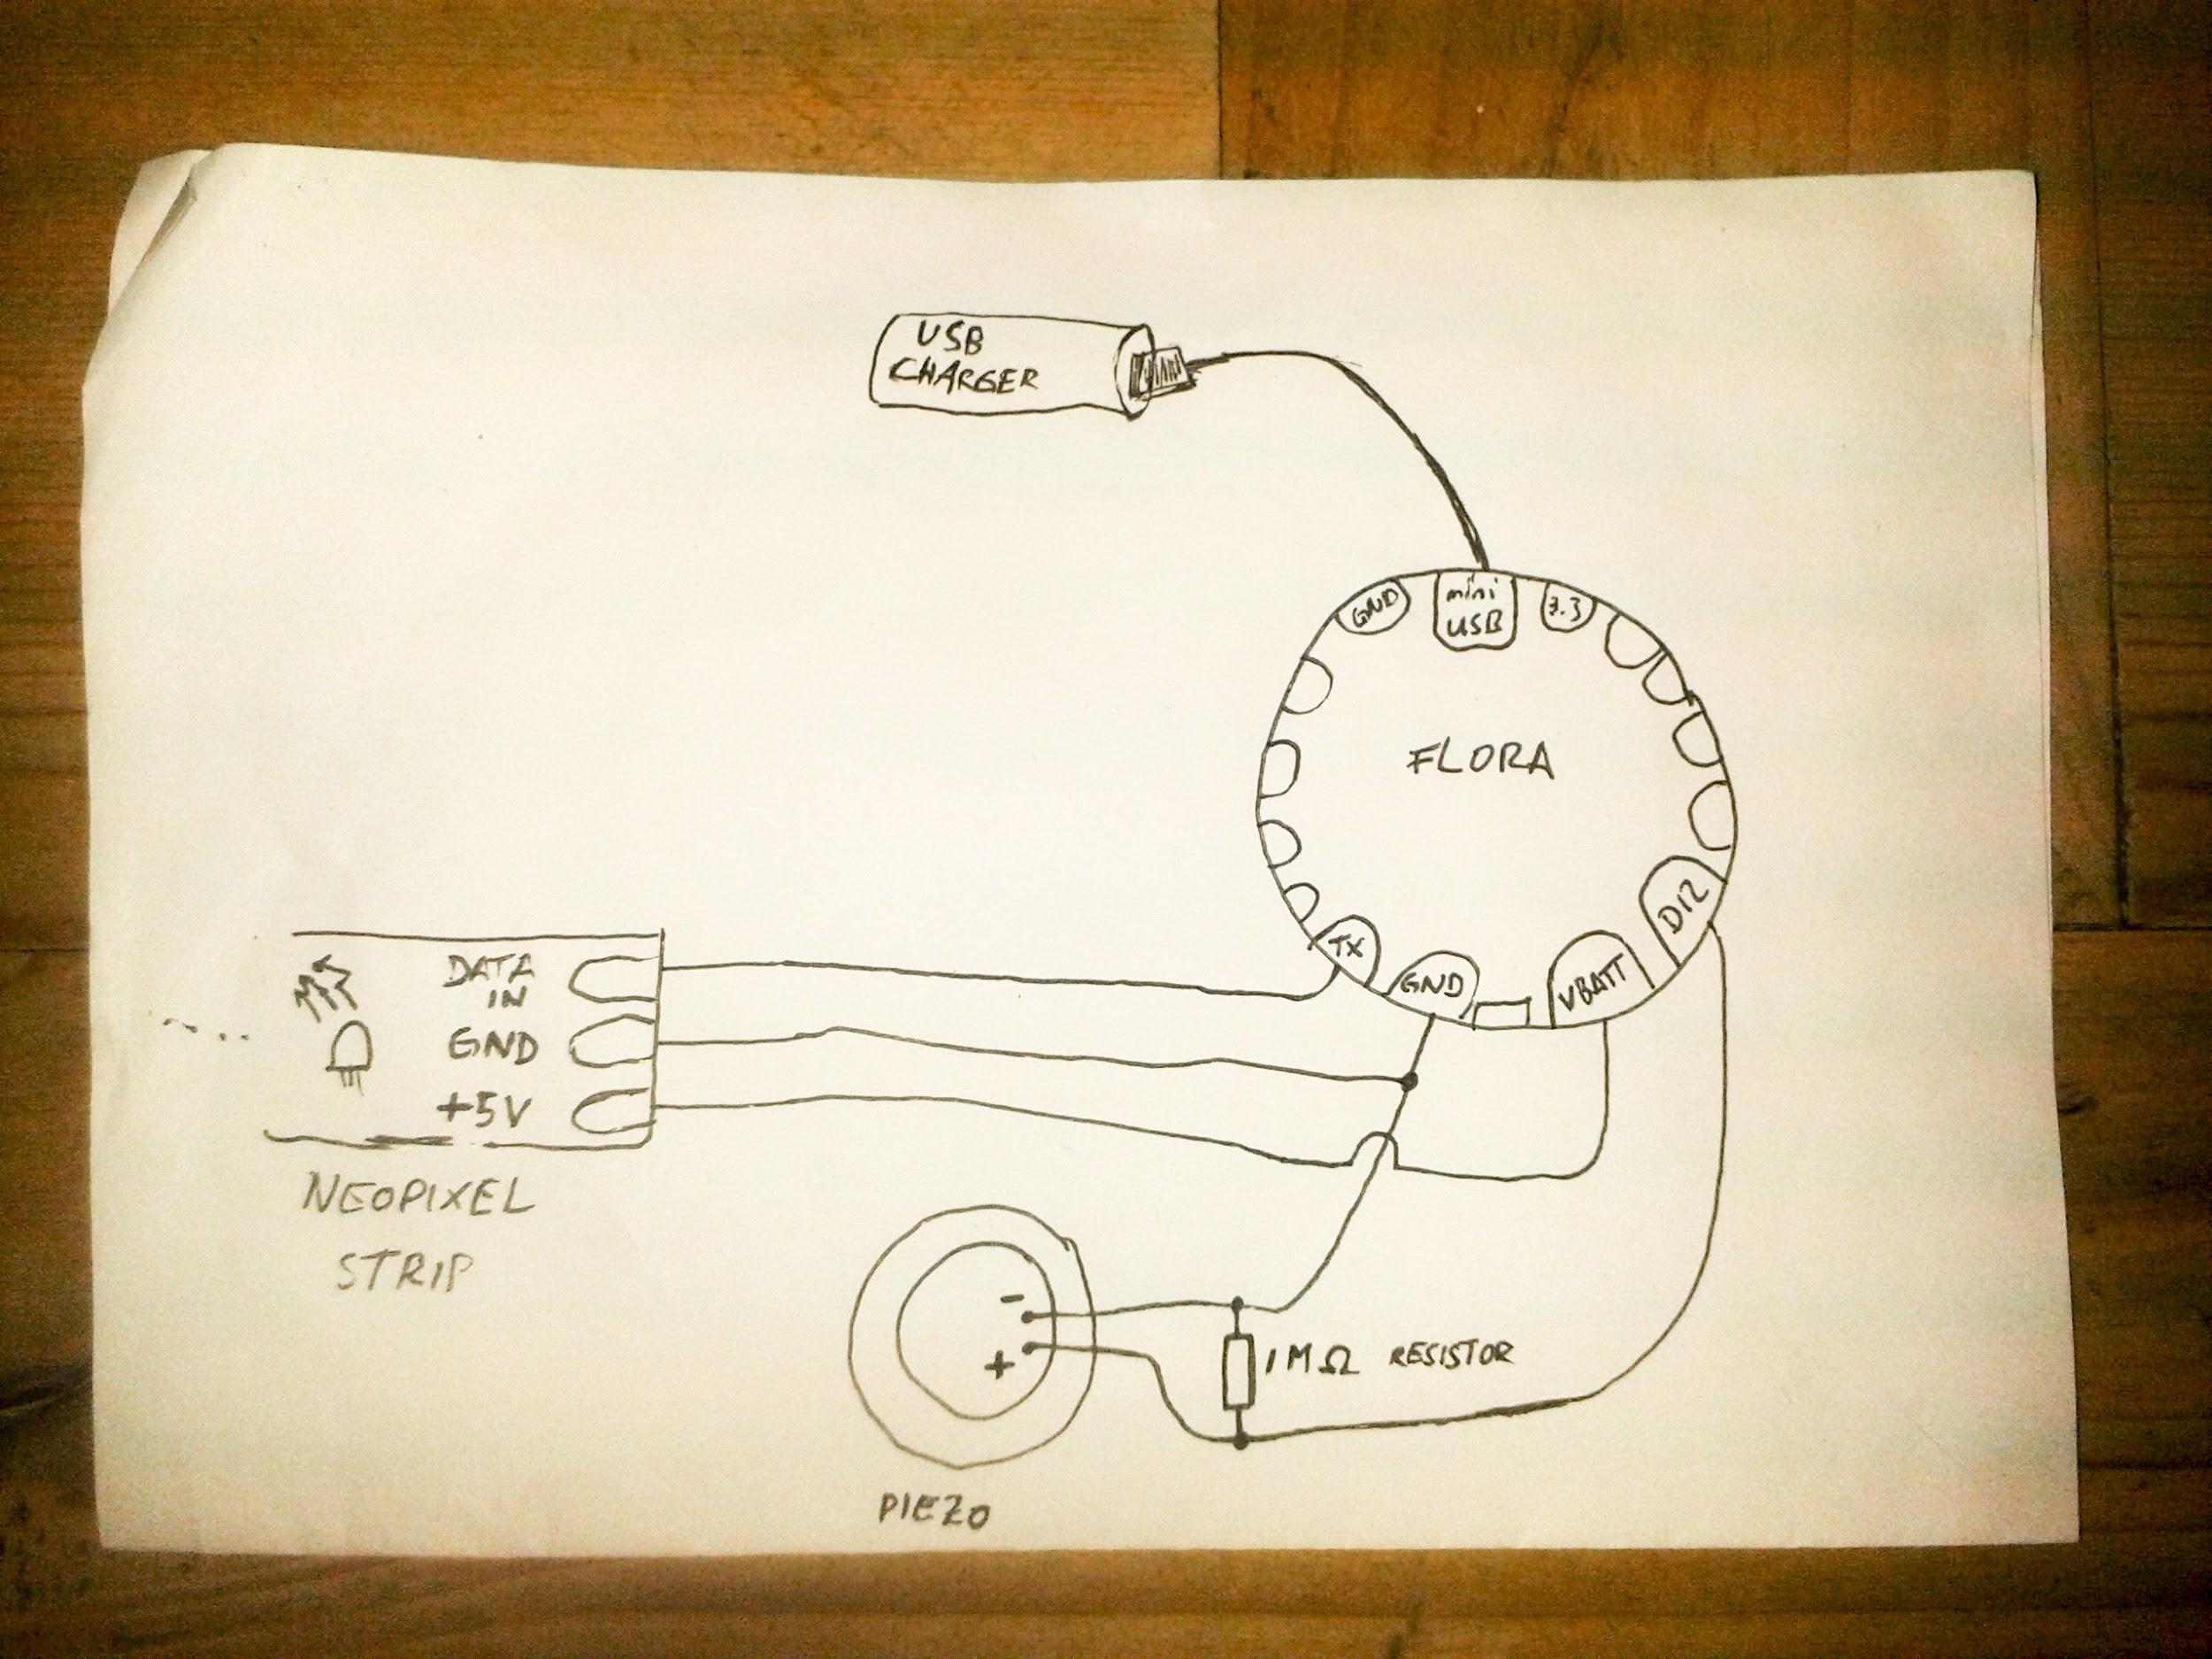 USB
CHARGER
GND
mini
USB
3.3
FLORA
D12
TX
GND
VBATT
DATA
IN
GND
+5V
NEOPIXEL
STRIP
-
+
1MΩ RESISTOR
PIEZO